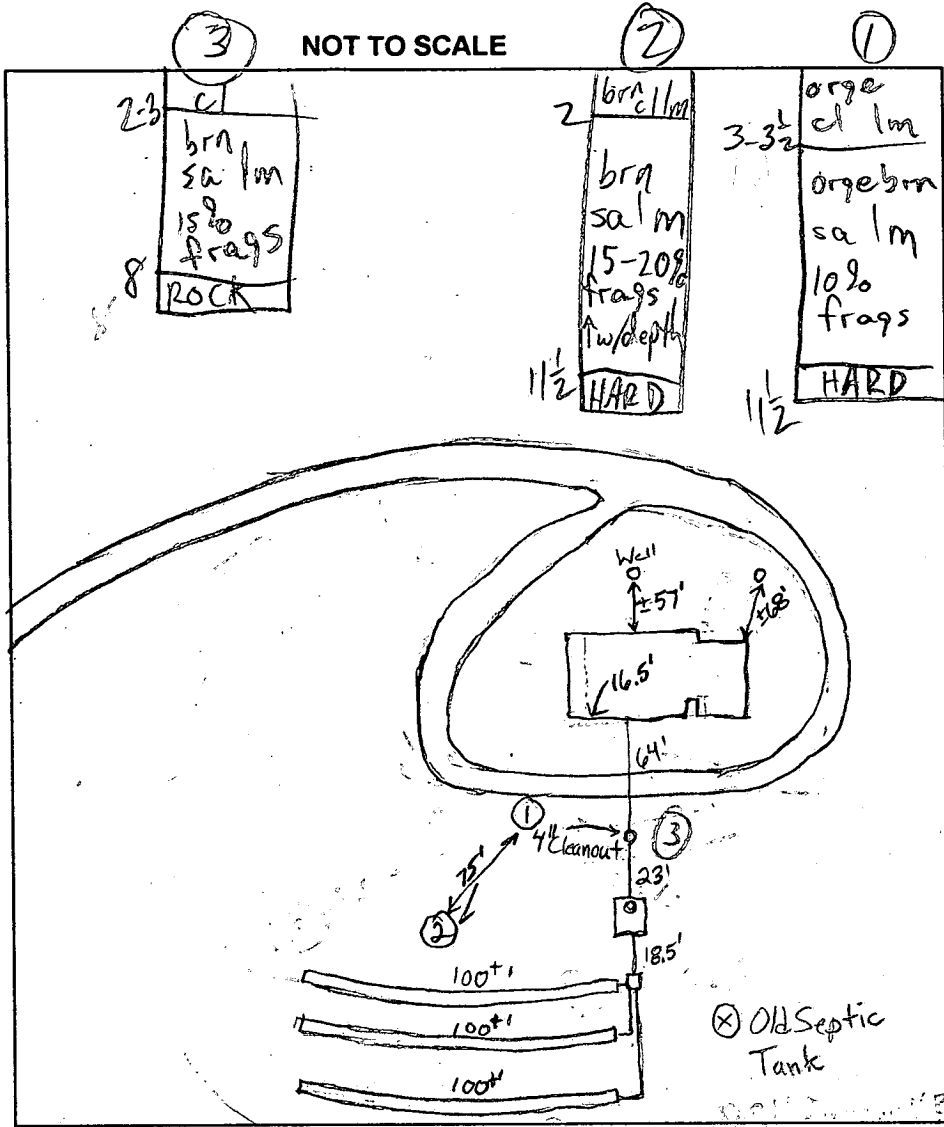 3
NOT TO SCALE
2
1
2-3
c
brn
sa lm
15%
frags
8
ROCK
2
brn
cl lm
brn
sa lm
15-20%
frags
↑w/depth
11 1/2
HARD
orge
cl lm
3-3 1/2
orgebrn
sa lm
10%
frags
HARD
11 1/2
Well
±57'
±68'
16.5'
64'
1
4" Cleanout
3
75'
23'
2
18.5'
100+'
100+'
100+'
Old Septic
Tank